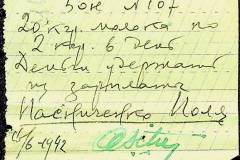 Бон №107
20 кгр. молока по
2 кгр. в день
Деньги удержать
из зарплаты
Пасниченко Поля
/6 1942